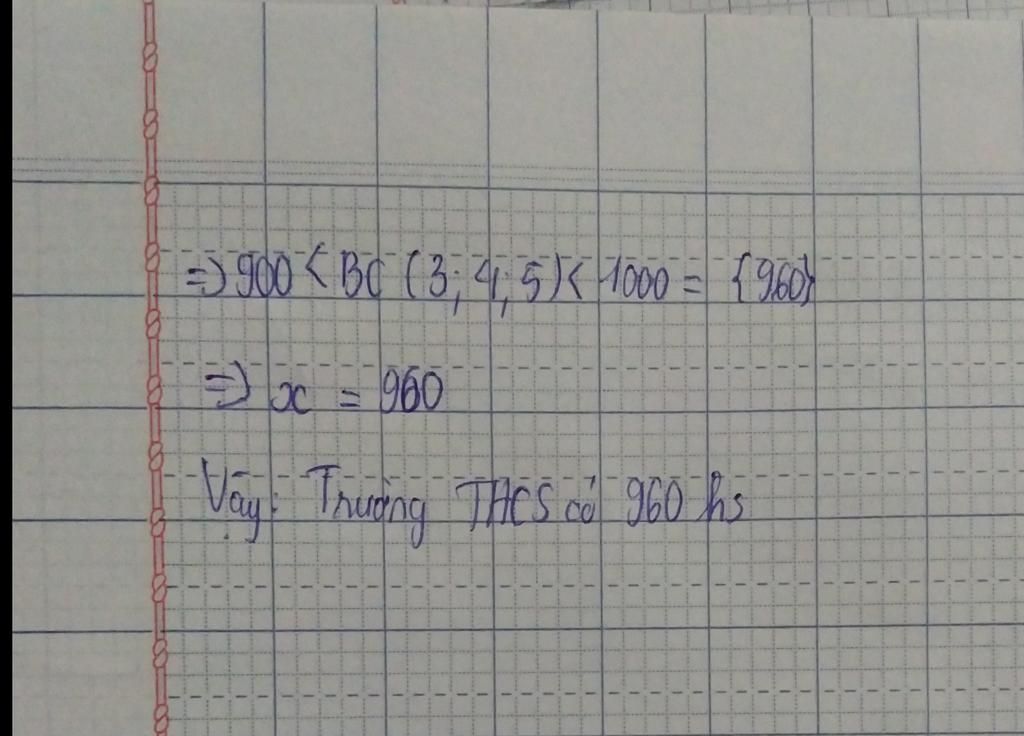 => 900 < BC (3; 4; 5) < 1000 = {960}
=> x = 960
Vậy: Trường THCS có 960 hs